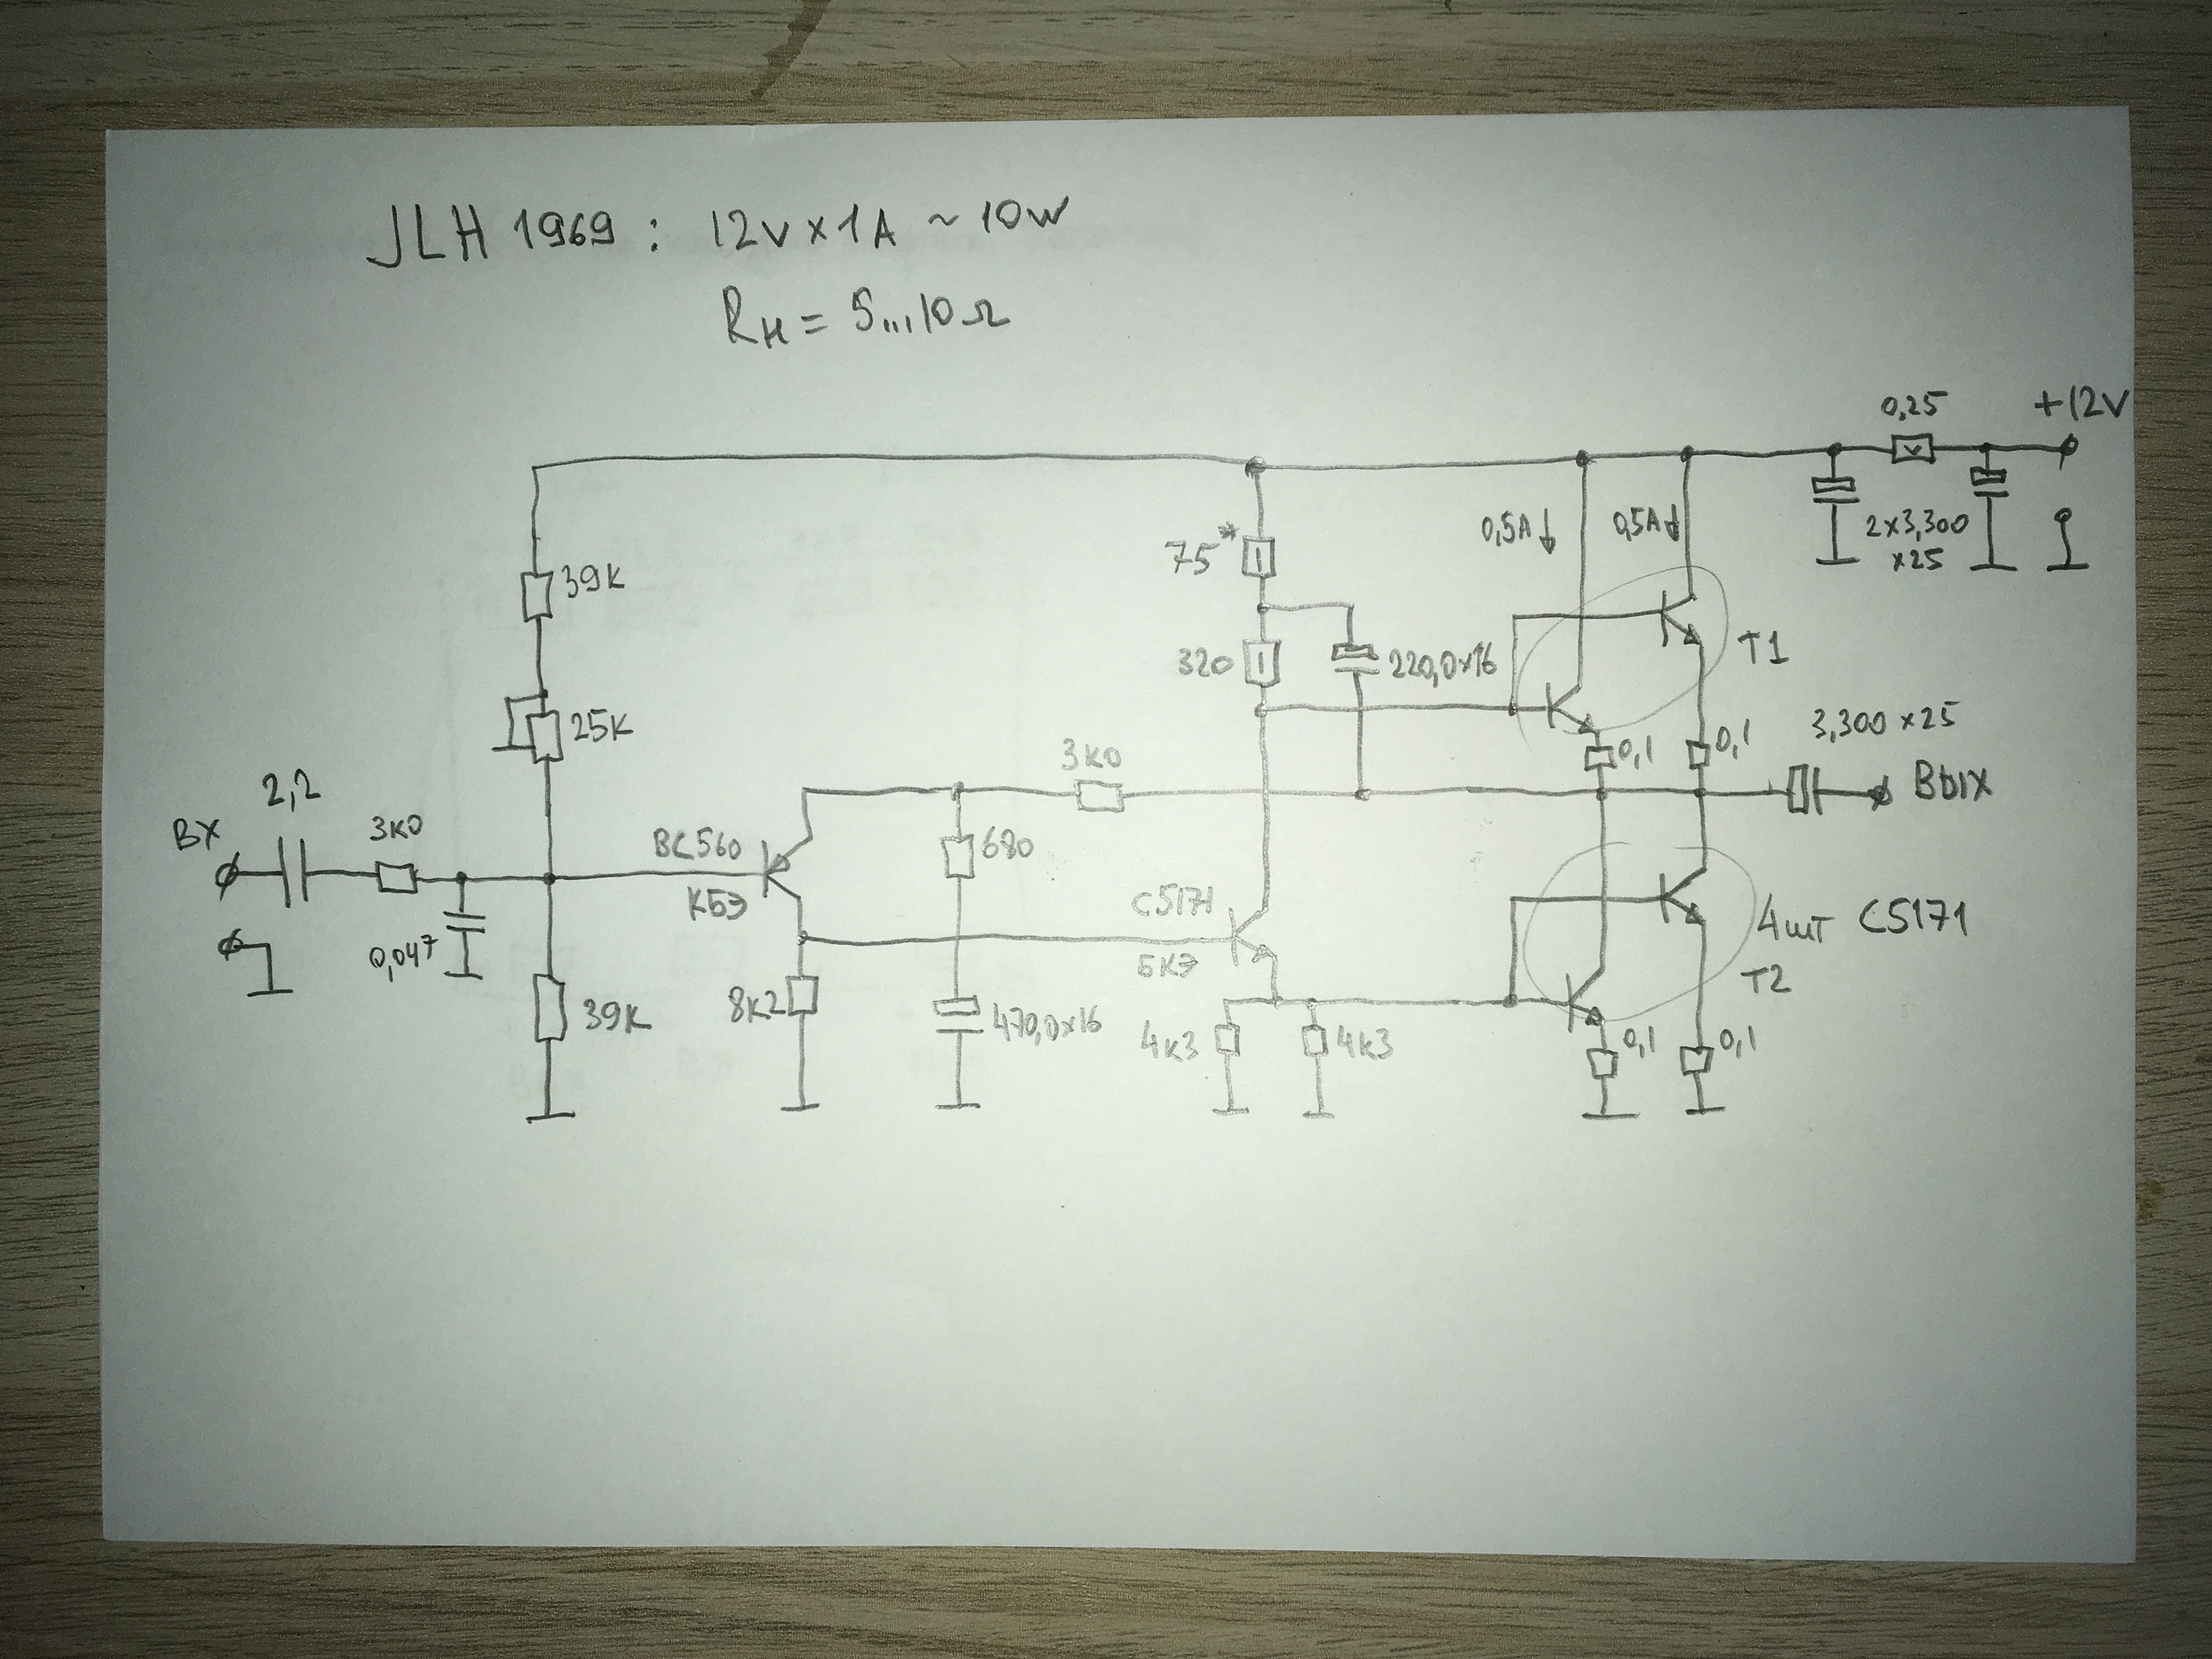 JLH 1969 : 12V x 1A ~ 10W
Rн = 5...10 Ω
0,25
+12V
2x3,300
x25
0,5A
0,5A
75*
39K
320
220,0x16
T1
25K
3K0
0,1
0,1
3,300 x 25
Вых
2,2
Вх
3K0
BC560
КБЭ
680
C5171
БКЭ
4шт C5171
T2
0,047
39K
8K2
470,0x16
4K3
4K3
0,1
0,1